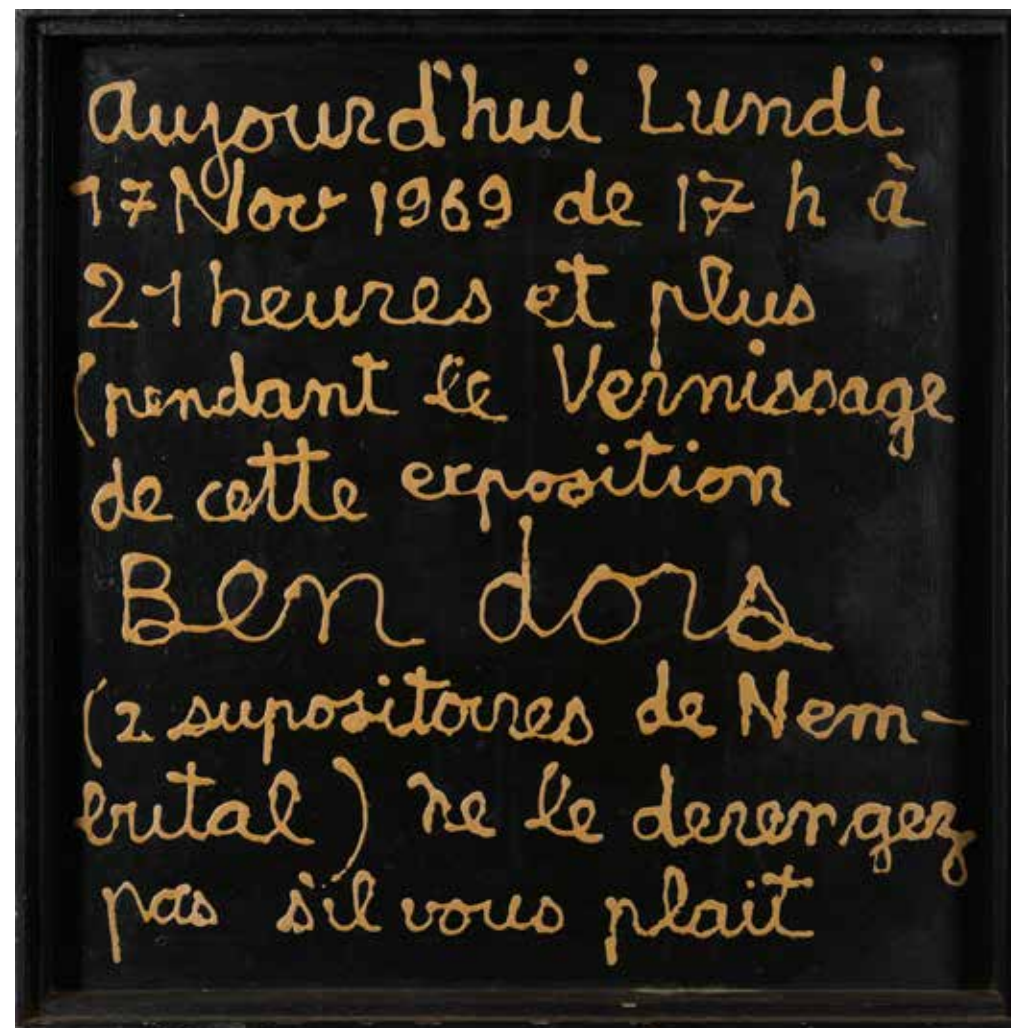 aujourd'hui Lundi
17 Nov 1969 de 17 h à
21 heures et plus
(pendant le Vernissage
de cette exposition
Ben dors
(2 supositoires de Nem-
butal) ne le derengez
pas s'il vous plait